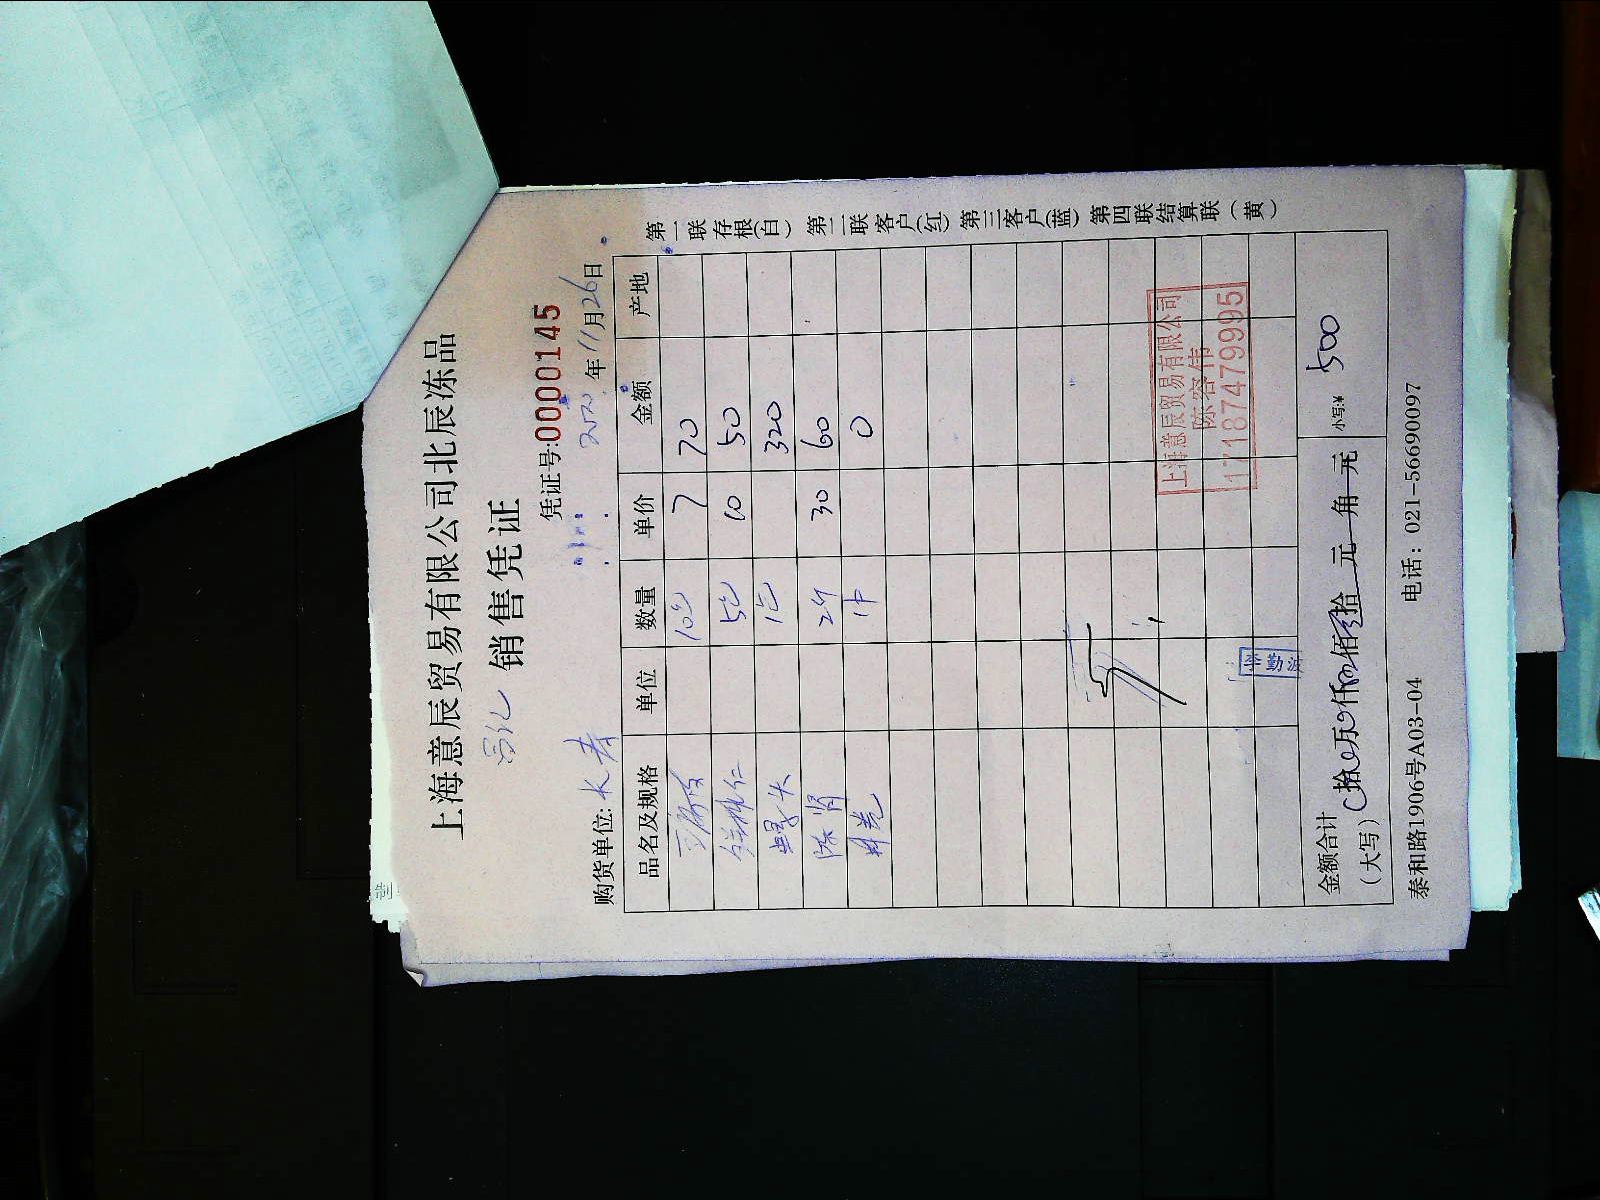 上海意辰贸易有限公司北辰冻品
销售凭证
凭证号:0000145
购货单位: 长寿 2020年11月26日
品名及规格 单位 数量 单价 金额 产地
10包 7 70
5包 10 50
1包 320
2斤 30 60
0
上海意辰贸易有限公司
陈容伟
17187479995
金额合计
(大写) 拾 万 仟 佰 拾 元 角 元 小写:¥ 500
泰和路1906号A03-04 电话：021-56690097
第一联存根(白) 第二联客户(红) 第三客户(蓝) 第四联结算联(黄)